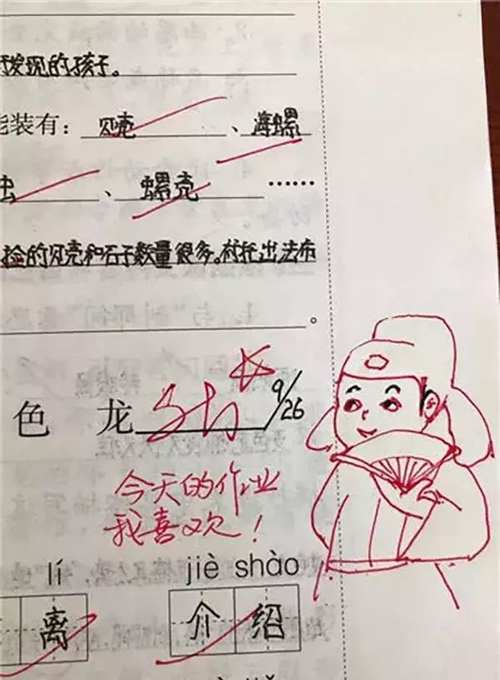 发现的孩子。
能装有：贝壳、海螺
虫、螺壳……
捡的贝壳和石子数量很多。衬托出法布
。
色 龙 9/26
今天的作业
我喜欢！
lí jiè shào
离 介绍